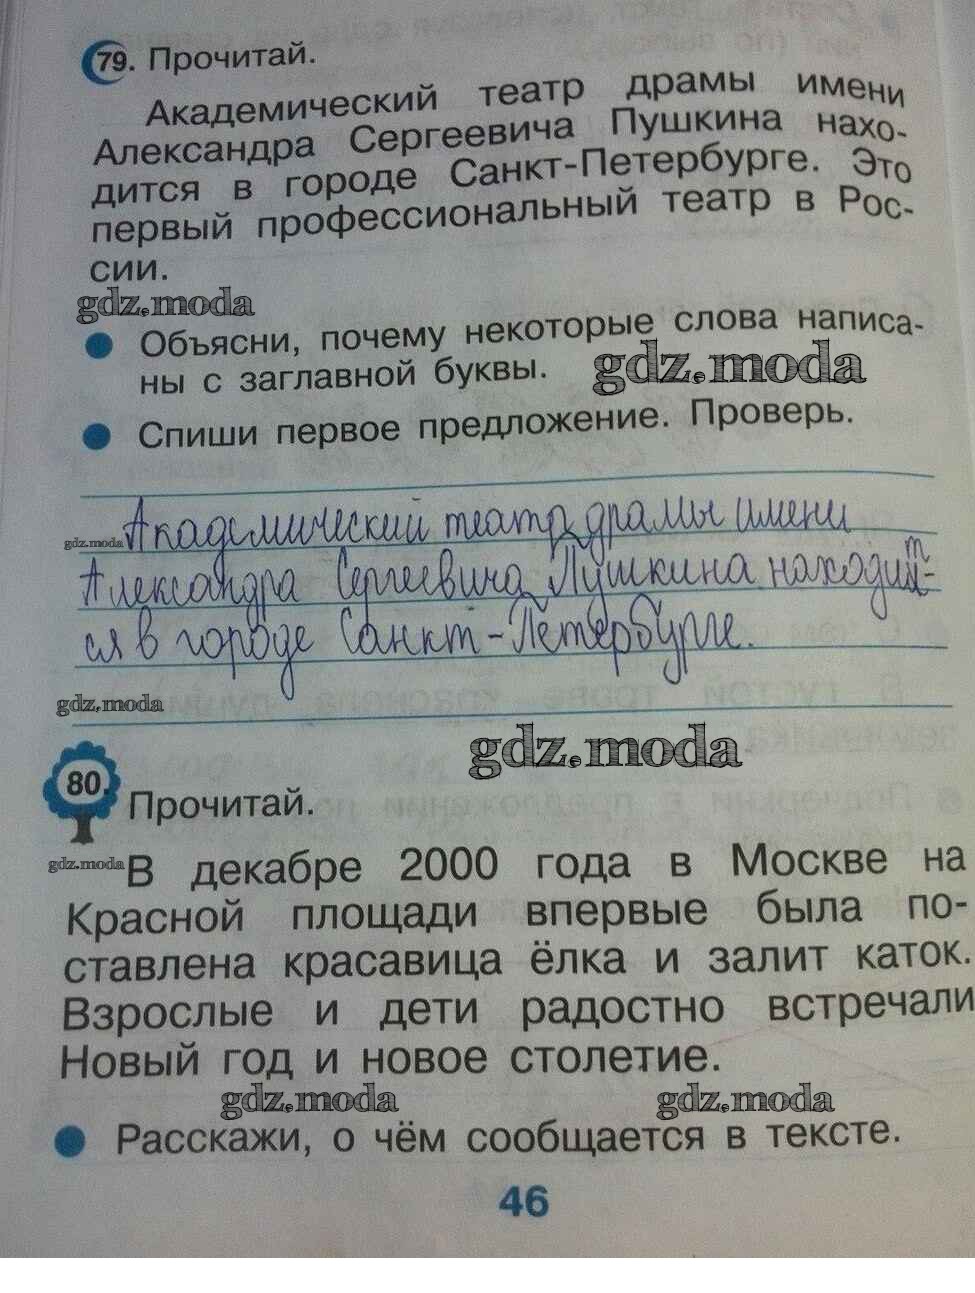 79. Прочитай.
Академический театр драмы имени
Александра Сергеевича Пушкина нахо-
дится в городе Санкт-Петербурге. Это
первый профессиональный театр в Рос-
сии.
gdz.moda
Объясни, почему некоторые слова написа-
ны с заглавной буквы.
gdz.moda
Спиши первое предложение. Проверь.
gdz.moda
Академический театр драмы имени
Александра Сергеевича Пушкина находит-
ся в городе Санкт-Петербурге.
gdz.moda
gdz.moda
80. Прочитай.
gdz.moda
В декабре 2000 года в Москве на
Красной площади впервые была по-
ставлена красавица ёлка и залит каток.
Взрослые и дети радостно встречали
Новый год и новое столетие.
gdz.moda gdz.moda
Расскажи, о чём сообщается в тексте.
46